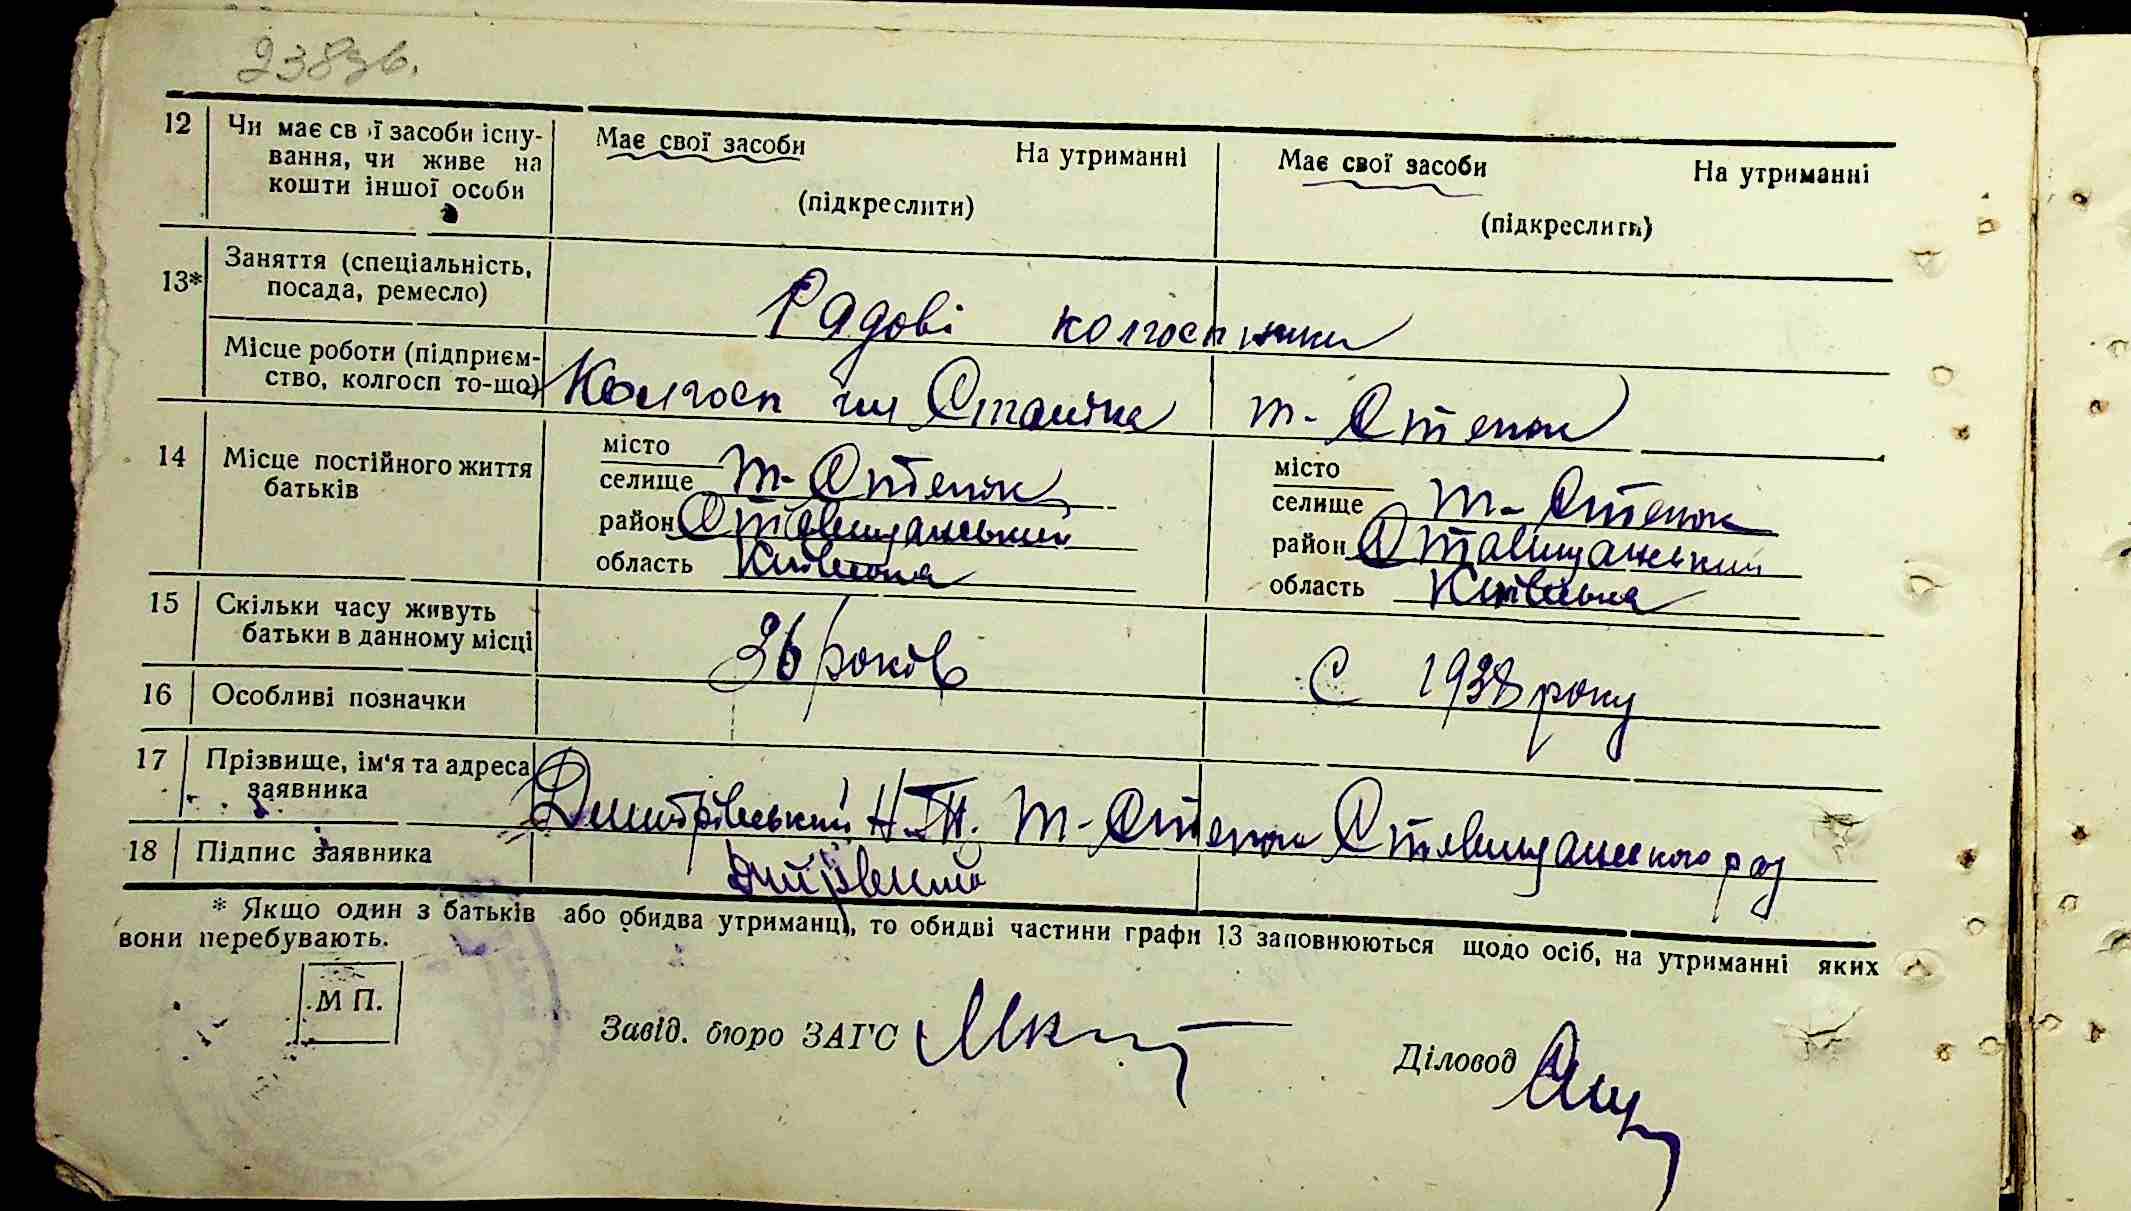 238зв.
12 Чи має св ї засоби існу-
вання, чи живе на
кошти іншої особи
Має свої засоби На утриманні
(підкреслити)
Має свої засоби На утриманні
(підкреслити)
13* Заняття (спеціальність,
посада, ремесло)
Рядові колгоспники
Місце роботи (підприєм-
ство, колгосп то-що)
Колгосп ім Сталіна т-Степок
14 Місце постійного життя
батьків
місто
селище т-Степок
район Ставищанський
область Київська
місто
селище т-Степок
район Ставищанський
область Київська
15 Скільки часу живуть
батьки в данному місці
36 років
С 1938 року
16 Особливі позначки
17 Прізвище, ім'я та адреса
заявника
Дмитрівський Н.Т. т-Степок Ставищанского рай
18 Підпис заявника
* Якщо один з батьків або обидва утриманці, то обидві частини графи 13 заповнюються щодо осіб, на утриманні яких
вони перебувають.
М П.
Завід. бюро ЗАГС
Діловод